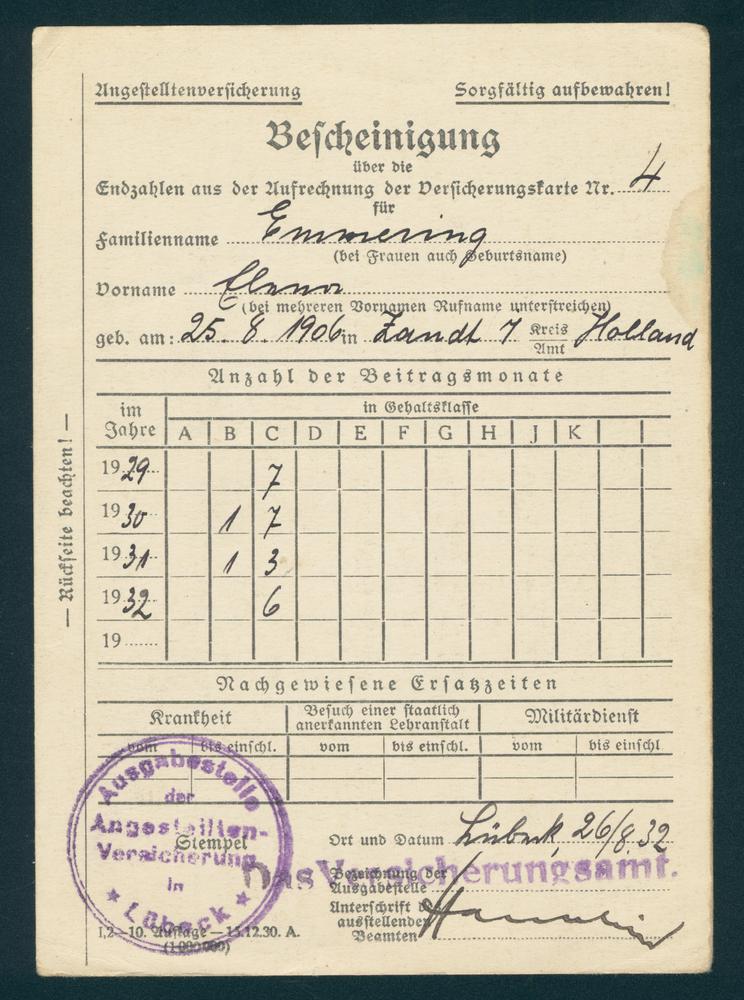 Angestelltenversicherung Sorgfältig aufbewahren!
Bescheinigung
über die
Endzahlen aus der Aufrechnung der Versicherungskarte Nr. 4
für
Familienname Emmering
(bei Frauen auch Geburtsname)
Vorname Elena
(bei mehreren Vornamen Rufname unterstreichen)
geb. am: 25. 8. 1906 in Zandt 7 Kreis Holland
Amt
Anzahl der Beitragsmonate
im Jahre in Gehaltsklasse
A B C D E F G H J K
1929 7
1930 1 7
1931 1 3
1932 6
19
— Rückseite beachten! —
Nachgewiesene Ersatzzeiten
Krankheit Besuch einer staatlich anerkannten Lehranstalt Militärdienst
vom bis einschl. vom bis einschl. vom bis einschl
Ausgabestelle
der
Angestellten-
Versicherung
in
Lübeck
Stempel
Ort und Datum Lübeck, 26/8.32
Bezeichnung der
Ausgabestelle
Das Versicherungsamt.
Unterschrift des
ausstellenden
Beamten
I,2—10. Auflage — 15.12.30. A.
(1 000 000)